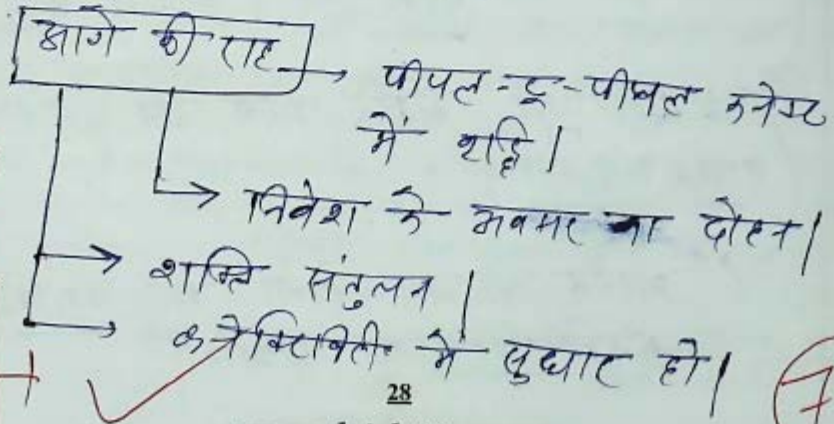 आगे की राह
पीपल-टू-पीपल कनेक्ट
में वृद्धि।
निवेश के अवसर का दोहन।
शक्ति संतुलन।
कनेक्टिविटी में सुधार हो।
28
7